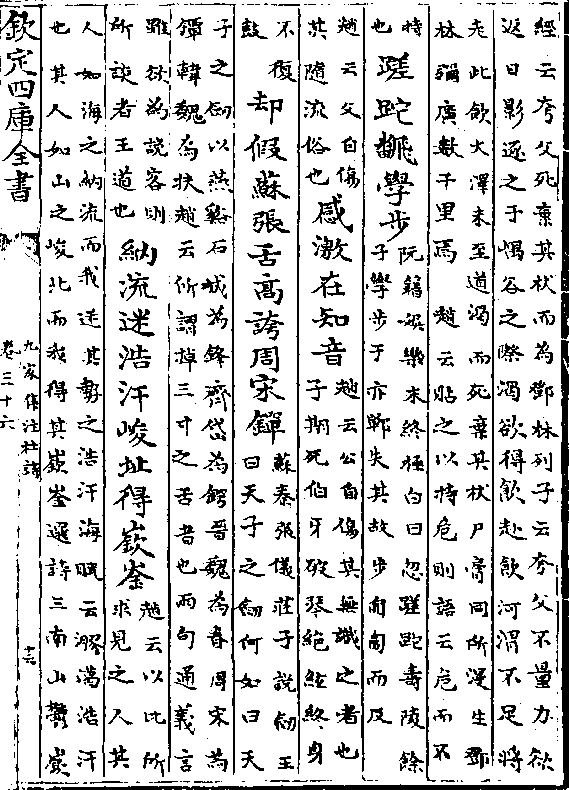 經云夸父死棄其杖而為鄧林列子云夸父不量力欲
追日影逐之于㬂谷之際渴欲得飲赴飲河渭不足將
走北飲大澤未至道渴而死棄其杖尸膏肉所浸生鄧
林彌廣數千里焉 趙云貼之以持危則語云危而不
持
也 蹉跎翻學步 阮籍娱樂未終極白日忽蹉跎壽陵餘
子學步于邯鄲失其故步匍匐而反
趙云父自傷
其隨流俗也 感激在知音 趙云公自傷其無識之者也
子期死伯牙破琴絶絃終身
不復
鼓 却假蘇張舌高誇周宋鐔 蘇秦張儀莊子説劒王
曰天子之劒何如曰天
子之劒以燕谿石城為鋒齊岱為鍔晉魏為脊周宋為
鐔韓魏為扶趙云所謂掉三寸之舌者也兩句通義言
雖欲為説客則
所談者王道也 納流迷浩汗峻址得嶔崟 趙云以比所
求見之人其
人如海之納流而我迷其勢之浩汗海賦云膠潏浩汗
也其人如山之峻北而我得其嶔崟選詩三南山鬱嶔
欽定四庫全書
九家集注杜詩
卷三十六